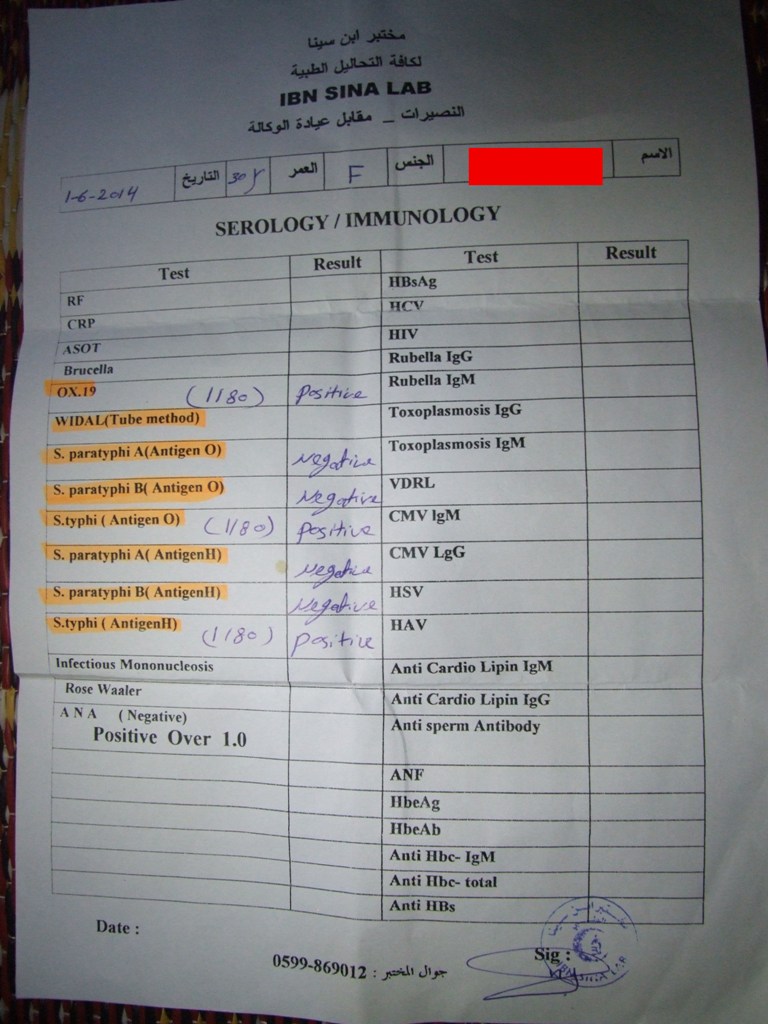 مختبر ابن سينا
لكافة التحاليل الطبية
IBN SINA LAB
النصيرات _ مقابل عيادة الوكالة
الاسم الجنس F العمر 30y التاريخ 1-6-2014
SEROLOGY / IMMUNOLOGY
Test Result Test Result
RF HBsAg
CRP HCV
ASOT HIV
Brucella Rubella IgG
OX.19 (1/80) positive Rubella IgM
WIDAL(Tube method) Toxoplasmosis IgG
S. paratyphi A(Antigen O) Negative Toxoplasmosis IgM
S. paratyphi B( Antigen O) Negative VDRL
S.typhi ( Antigen O) (1/80) positive CMV lgM
S. paratyphi A( AntigenH) Negative CMV LgG
S. paratyphi B( AntigenH) Negative HSV
S.typhi ( AntigenH) (1/80) positive HAV
Infectious Mononucleosis Anti Cardio Lipin IgM
Rose Waaler Anti Cardio Lipin IgG
A N A ( Negative) Anti sperm Antibody
Positive Over 1.0
ANF
HbeAg
HbeAb
Anti Hbc- IgM
Anti Hbc- total
Anti HBs
Date :
Sig :
جوال المختبر : 0599-869012